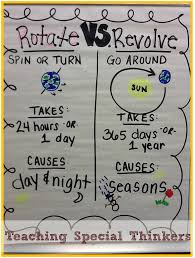 Rotate VS. Revolve
SPIN OR TURN
GO AROUND
SUN
TAKES:
24 hours -OR-
1 day
TAKES:
365 days -OR-
1 year
CAUSES:
day & night
CAUSES:
seasons
Teaching Special Thinkers